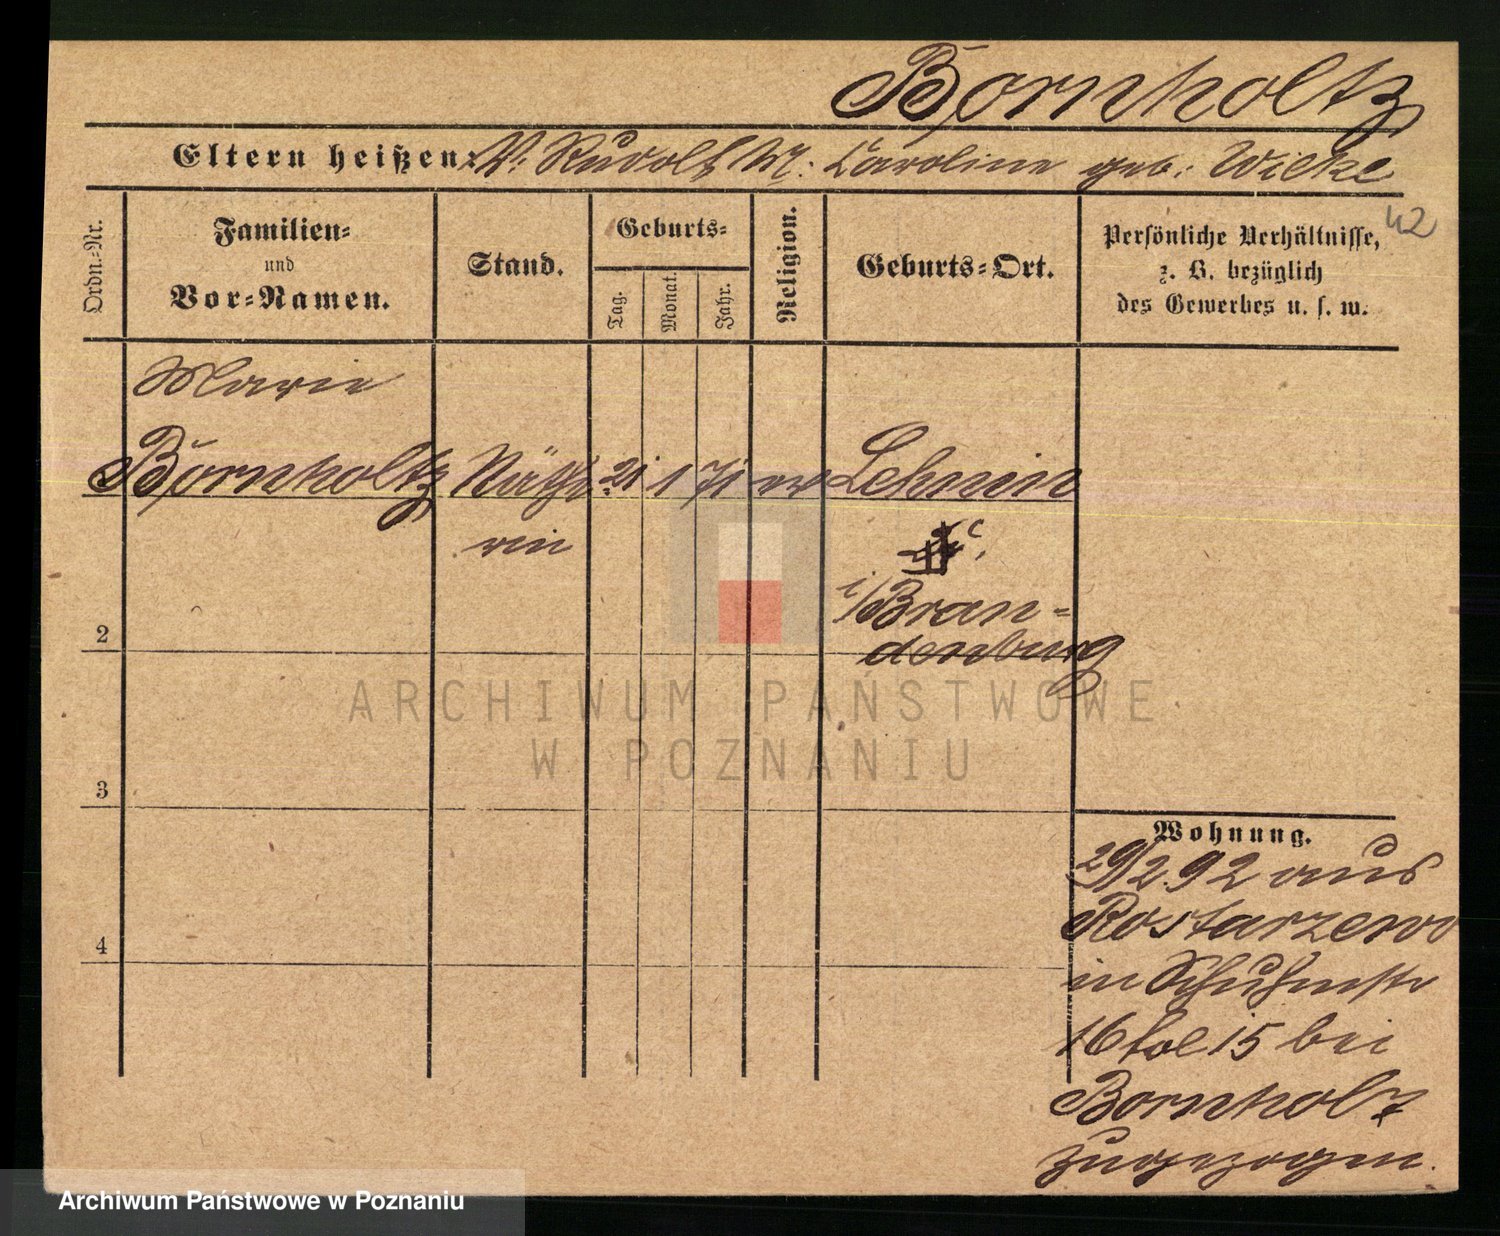 Bornholtz
Eltern heißen: V. Rudolf M. Caroline geb. Wilke
42
Ordn.-Nr.
Familien-
und
Vor-Namen.
Stand.
Geburts-
Tag.
Monat.
Jahr.
Religion.
Geburts-Ort.
Persönliche Verhältnisse,
z. B. bezüglich
des Gewerbes u. s. w.
Marie
Bornholtz Näthe- 21 1 71 ev Lehnin
rin
i/Bran-
denburg
2
3
4
Wohnung.
29/2.92 aus
Rostarzewo
in Schuhmstr
16 bei
Bornholz
zugezogen.
ARCHIWUM PAŃSTWOWE
W POZNANIU
Archiwum Państwowe w Poznaniu